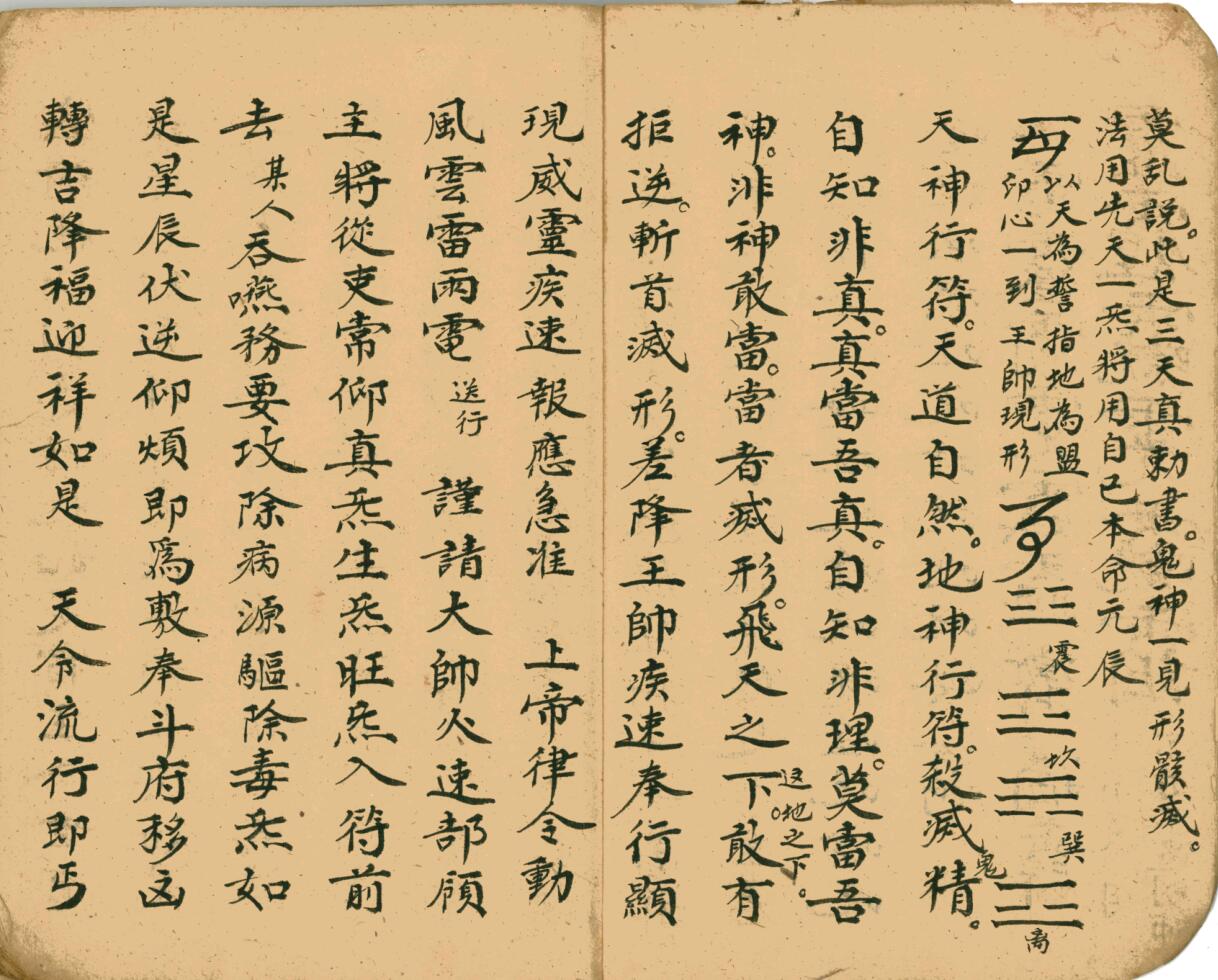 莫乱說。此是三天真勅書。鬼神一見形骸滅。
法用先天一炁將用自己本命元辰
以天為誓指地為盟
印心一到王帥現形
☳震☵坎☴巽☲离
天神行符。天道自然。地神行符。殺滅精鬼。
自知非真。真當吾真。自知非理。莫當吾
神。非神敢當。當者滅形。飛天之下敢有
这地之下。
拒逆。斬首滅形。差降王帥疾速奉行顯
現威靈疾速報應急准 上帝律令動
風雲雷雨電 送行 謹請大帥火速部領
主將從吏常仰真炁生炁旺炁入符前
去某人吞嚥務要攻除病源驅除毒炁如
是星辰伏逆仰煩即為敷奉斗府移凶
轉吉降福迎祥如是 天令流行即丐